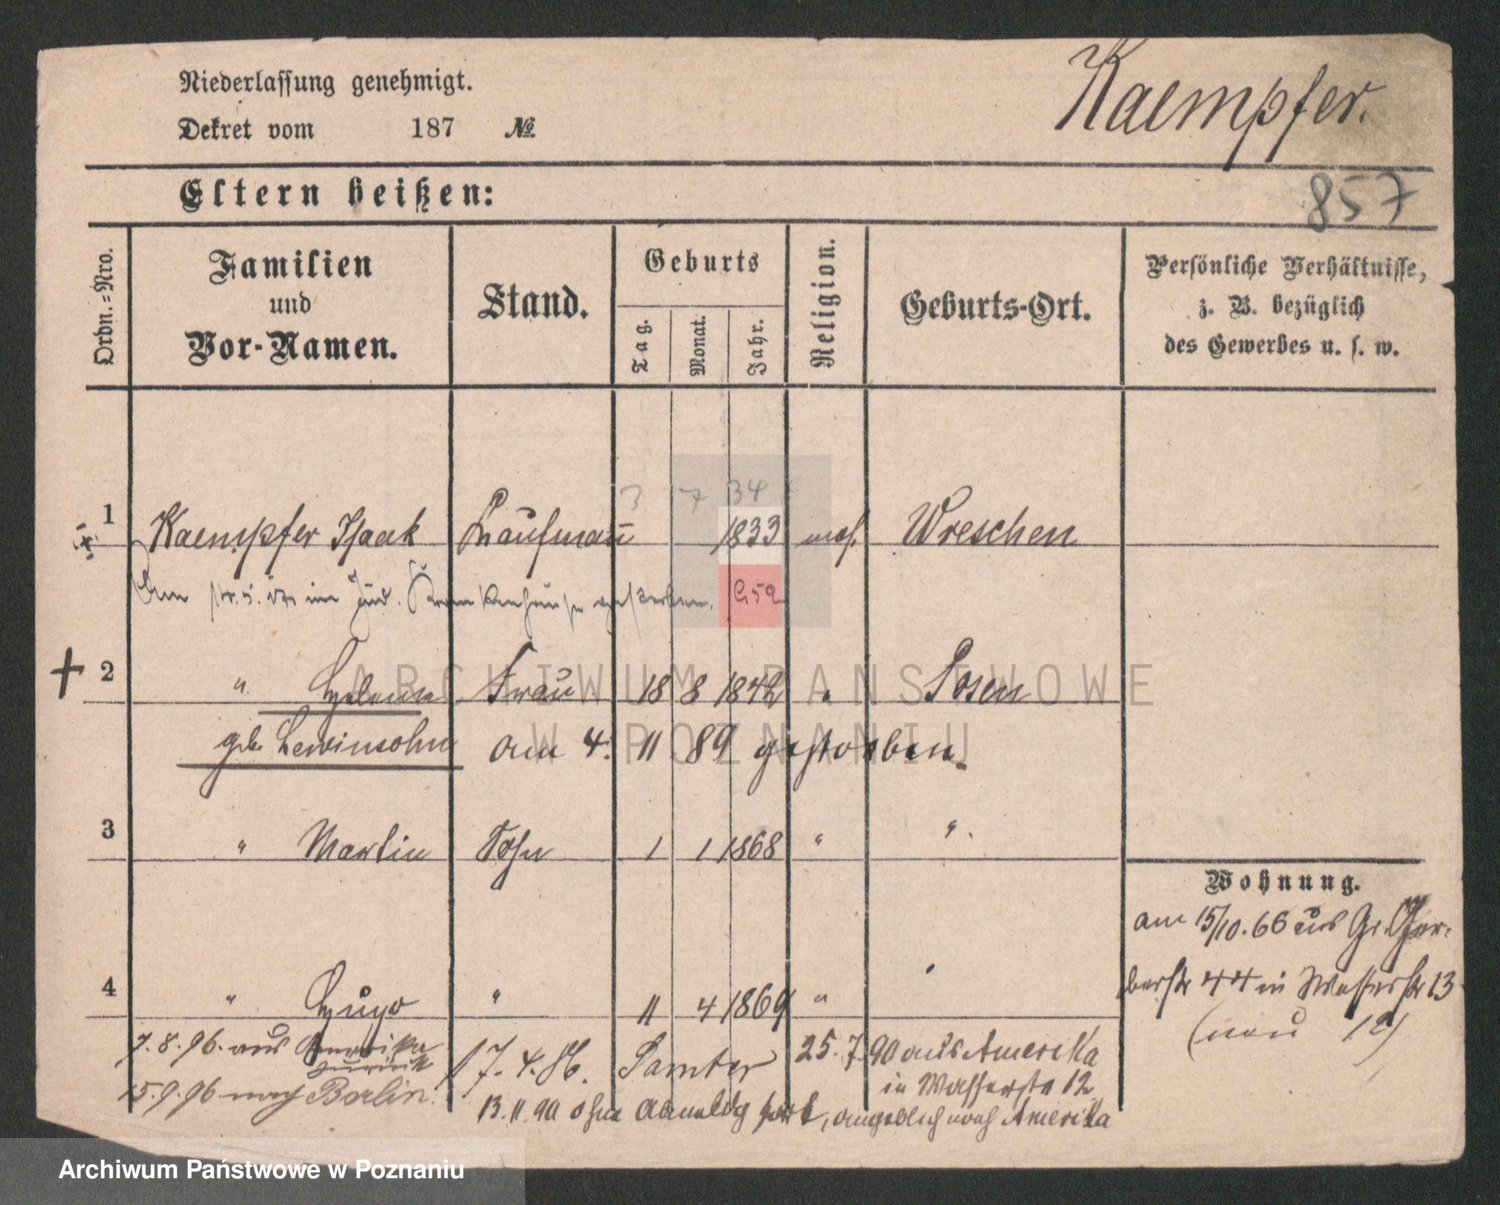 Niederlassung genehmigt.
Dekret vom 187 №
Kaempfer.
Eltern heißen:
857
Ordn.=Nro.
Familien und Vor-Namen.
Stand.
Geburts
Tag.
Monat.
Jahr.
Religion.
Geburts-Ort.
Persönliche Verhältnisse,
z. B. bezüglich
des Gewerbes u. s. w.
3 7 34
1 Kaempfer Isaak Kaufmann 1833 mos. Wreschen
im Jüd. Krankenhause gestorben.
2 " Frau 18 8 1842 " Posen
geb. Lewinsohn am 4. 11 89 gestorben.
3 " Martin Sohn 1 1 1868 " "
Wohnung.
am 15/10. 66 aus Gr. Ger-
berstr 44 in Wasserstr 13
(neu 12)
4 " Hugo " 11 4 1869 "
7. 8. 96. aus Amerika
zurück
17. 4. 86. Samter
25. 7. 90 aus Amerika
in Wasserstr 12
15. 9. 96 nach Berlin.
13. 11. 90 ohne Abmeldg fort, angeblich nach Amerika
ARCHIWUM PAŃSTWOWE
W POZNANIU
Archiwum Państwowe w Poznaniu